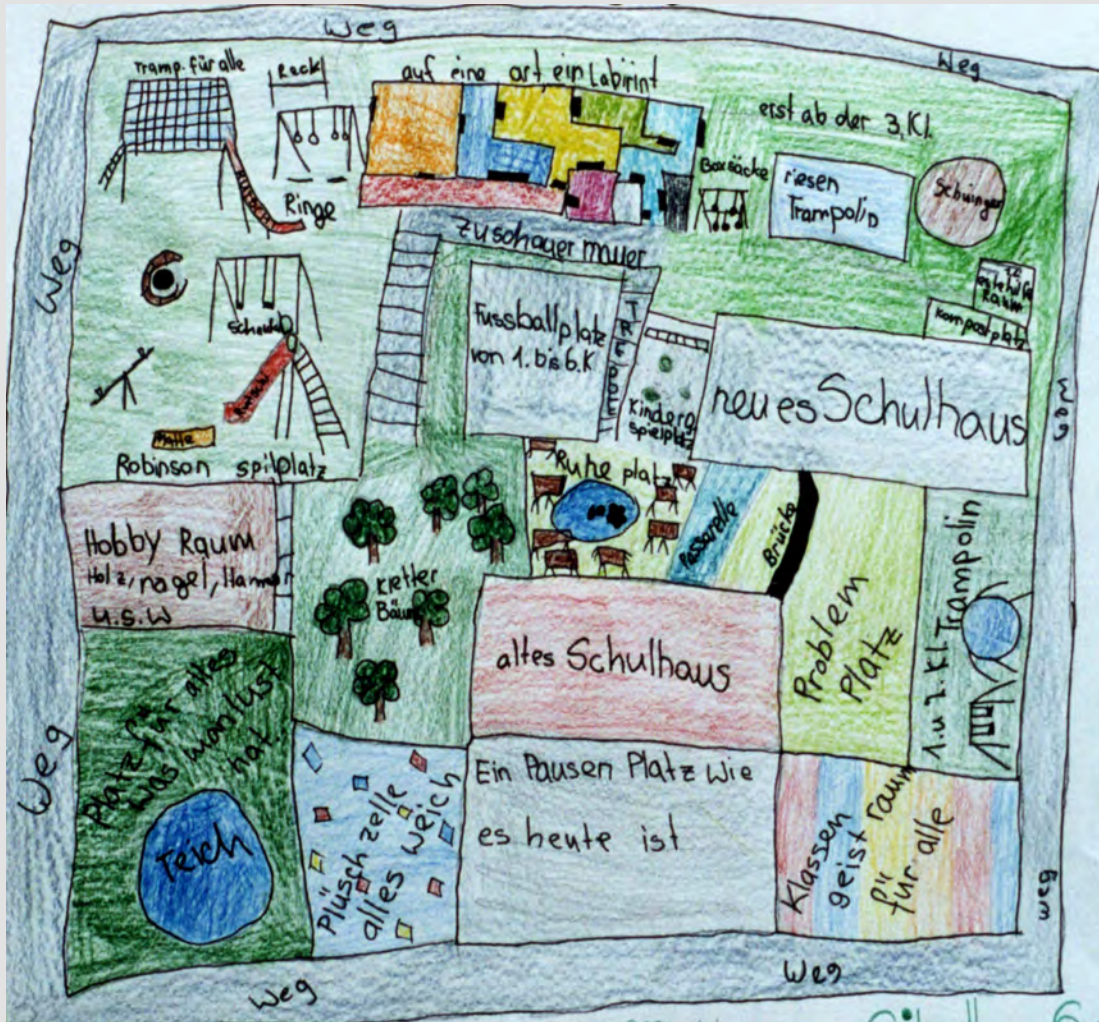 Weg
Weg
Tramp. für alle
Reck
auf eine art ein Labirint
erst ab der 3. Kl.
Boxsäcke
riesen
Trampolin
Schwinger
Ringe
Weg
Zuschauer mauer
Raum
Kompostplatz
Fussballplatz
von 1. bis 6. K
Kinderg.
spielplatz
neues Schulhaus
Weg
Matte
Robinson spilplatz
Ruhe platz
Passarelle
Brücke
Hobby Raum
Holz, nagel, Hammer
u.s.w
kletter
Bäume
altes Schulhaus
Problem
Platz
1. u 2. Kl. Trampolin
Weg
Platz für alles
was man lust
hat.
Teich
Plüsch zelle
alles weich
Ein Pausen Platz wie
es heute ist
Klassen
geist raum
für alle
weg
Weg
Weg